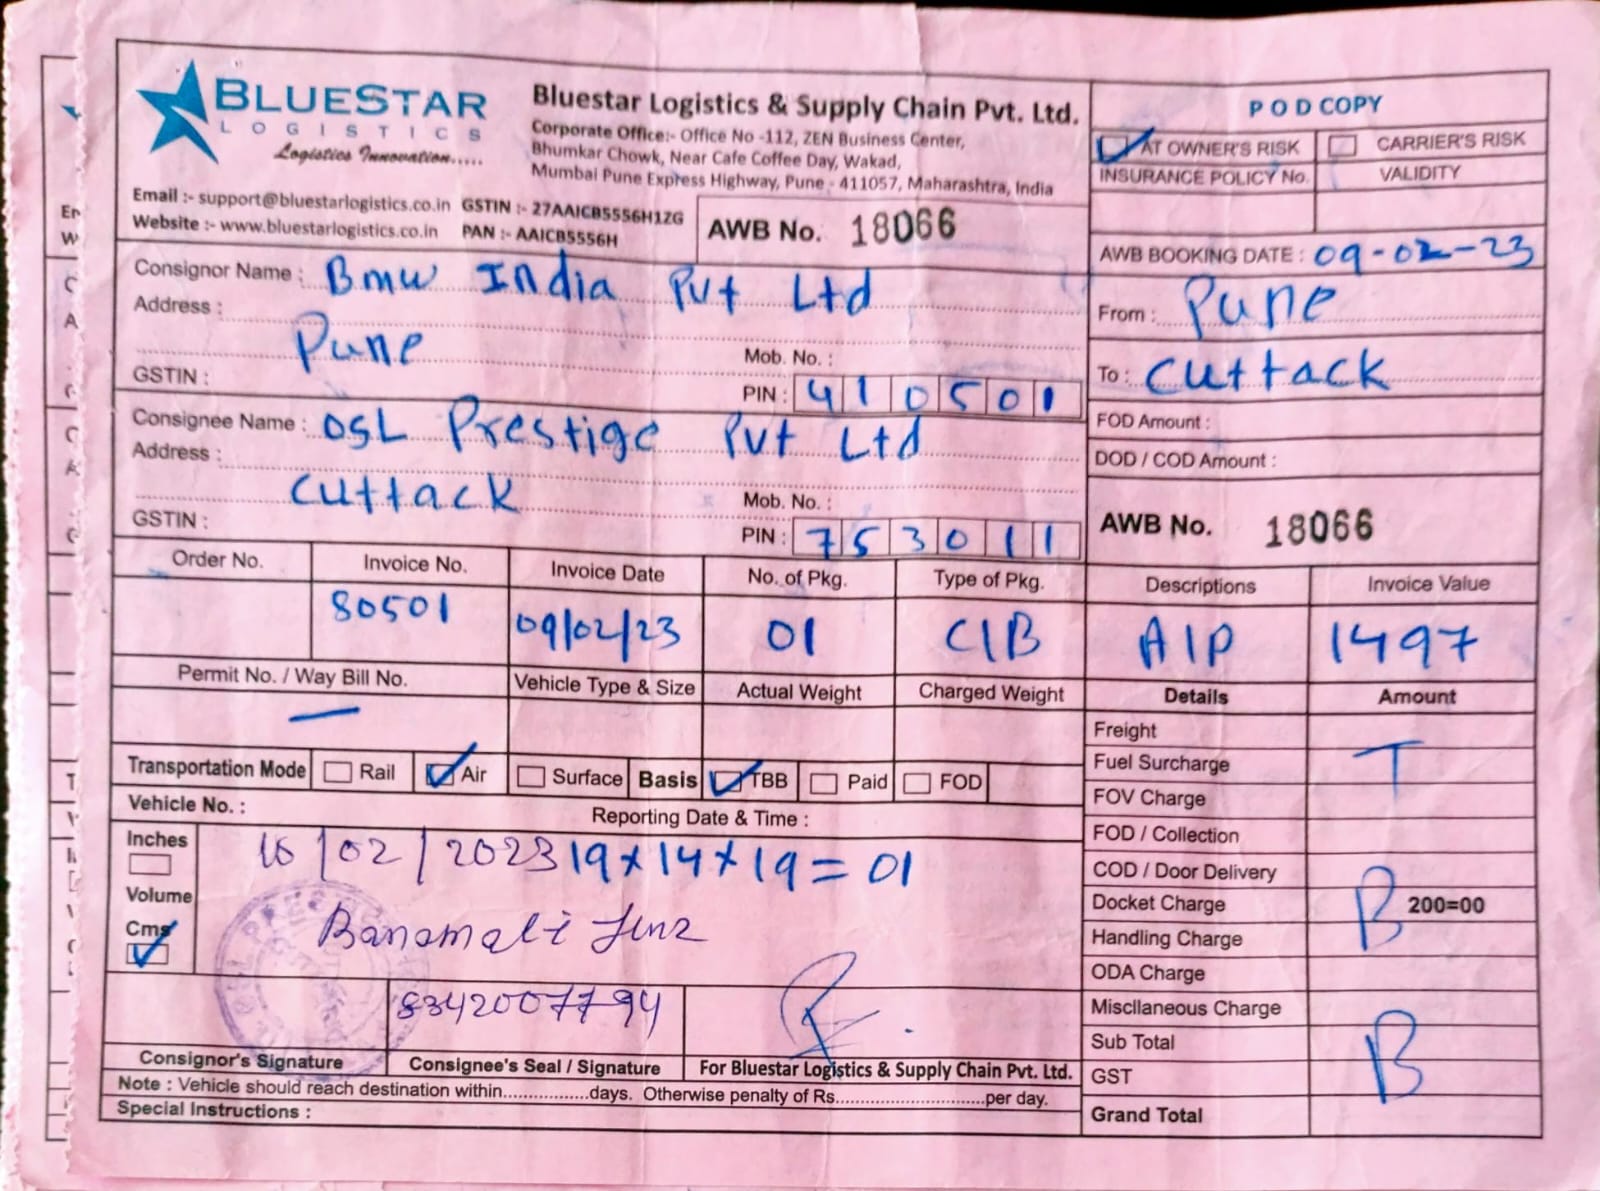 BLUESTAR
LOGISTICS
Logistics Innovation.....
Bluestar Logistics & Supply Chain Pvt. Ltd.
Corporate Office:- Office No -112, ZEN Business Center,
Bhumkar Chowk, Near Cafe Coffee Day, Wakad,
Mumbai Pune Express Highway, Pune - 411057, Maharashtra, India
Email :- support@bluestarlogistics.co.in GSTIN :- 27AAICB5556H1ZG
Website :- www.bluestarlogistics.co.in PAN :- AAICB5556H
AWB No. 18066
POD COPY
AT OWNER'S RISK CARRIER'S RISK
INSURANCE POLICY No. VALIDITY
AWB BOOKING DATE : 09-02-23
From : Pune
To : Cuttack
FOD Amount :
DOD / COD Amount :
AWB No. 18066
Consignor Name : Bmw India Pvt Ltd
Address :
Pune
Mob. No. :
GSTIN :
PIN : 410501
Consignee Name : OSL Prestige Pvt Ltd
Address :
Cuttack
Mob. No. :
GSTIN :
PIN : 753011
Order No. Invoice No. Invoice Date No. of Pkg. Type of Pkg. Descriptions Invoice Value
80501 09/02/23 01 C/B A/P 1497
Permit No. / Way Bill No. Vehicle Type & Size Actual Weight Charged Weight
—
Transportation Mode Rail Air Surface Basis TBB Paid FOD
Vehicle No. : Reporting Date & Time :
Inches
Volume
Cms
/02/2023 19x14x19=01
Banamali
8342007794
Consignor's Signature Consignee's Seal / Signature For Bluestar Logistics & Supply Chain Pvt. Ltd.
Note : Vehicle should reach destination within................days. Otherwise penalty of Rs............................per day.
Special Instructions :
Details Amount
Freight
Fuel Surcharge T
FOV Charge
FOD / Collection
COD / Door Delivery
Docket Charge B 200=00
Handling Charge
ODA Charge
Miscllaneous Charge
Sub Total
GST B
Grand Total